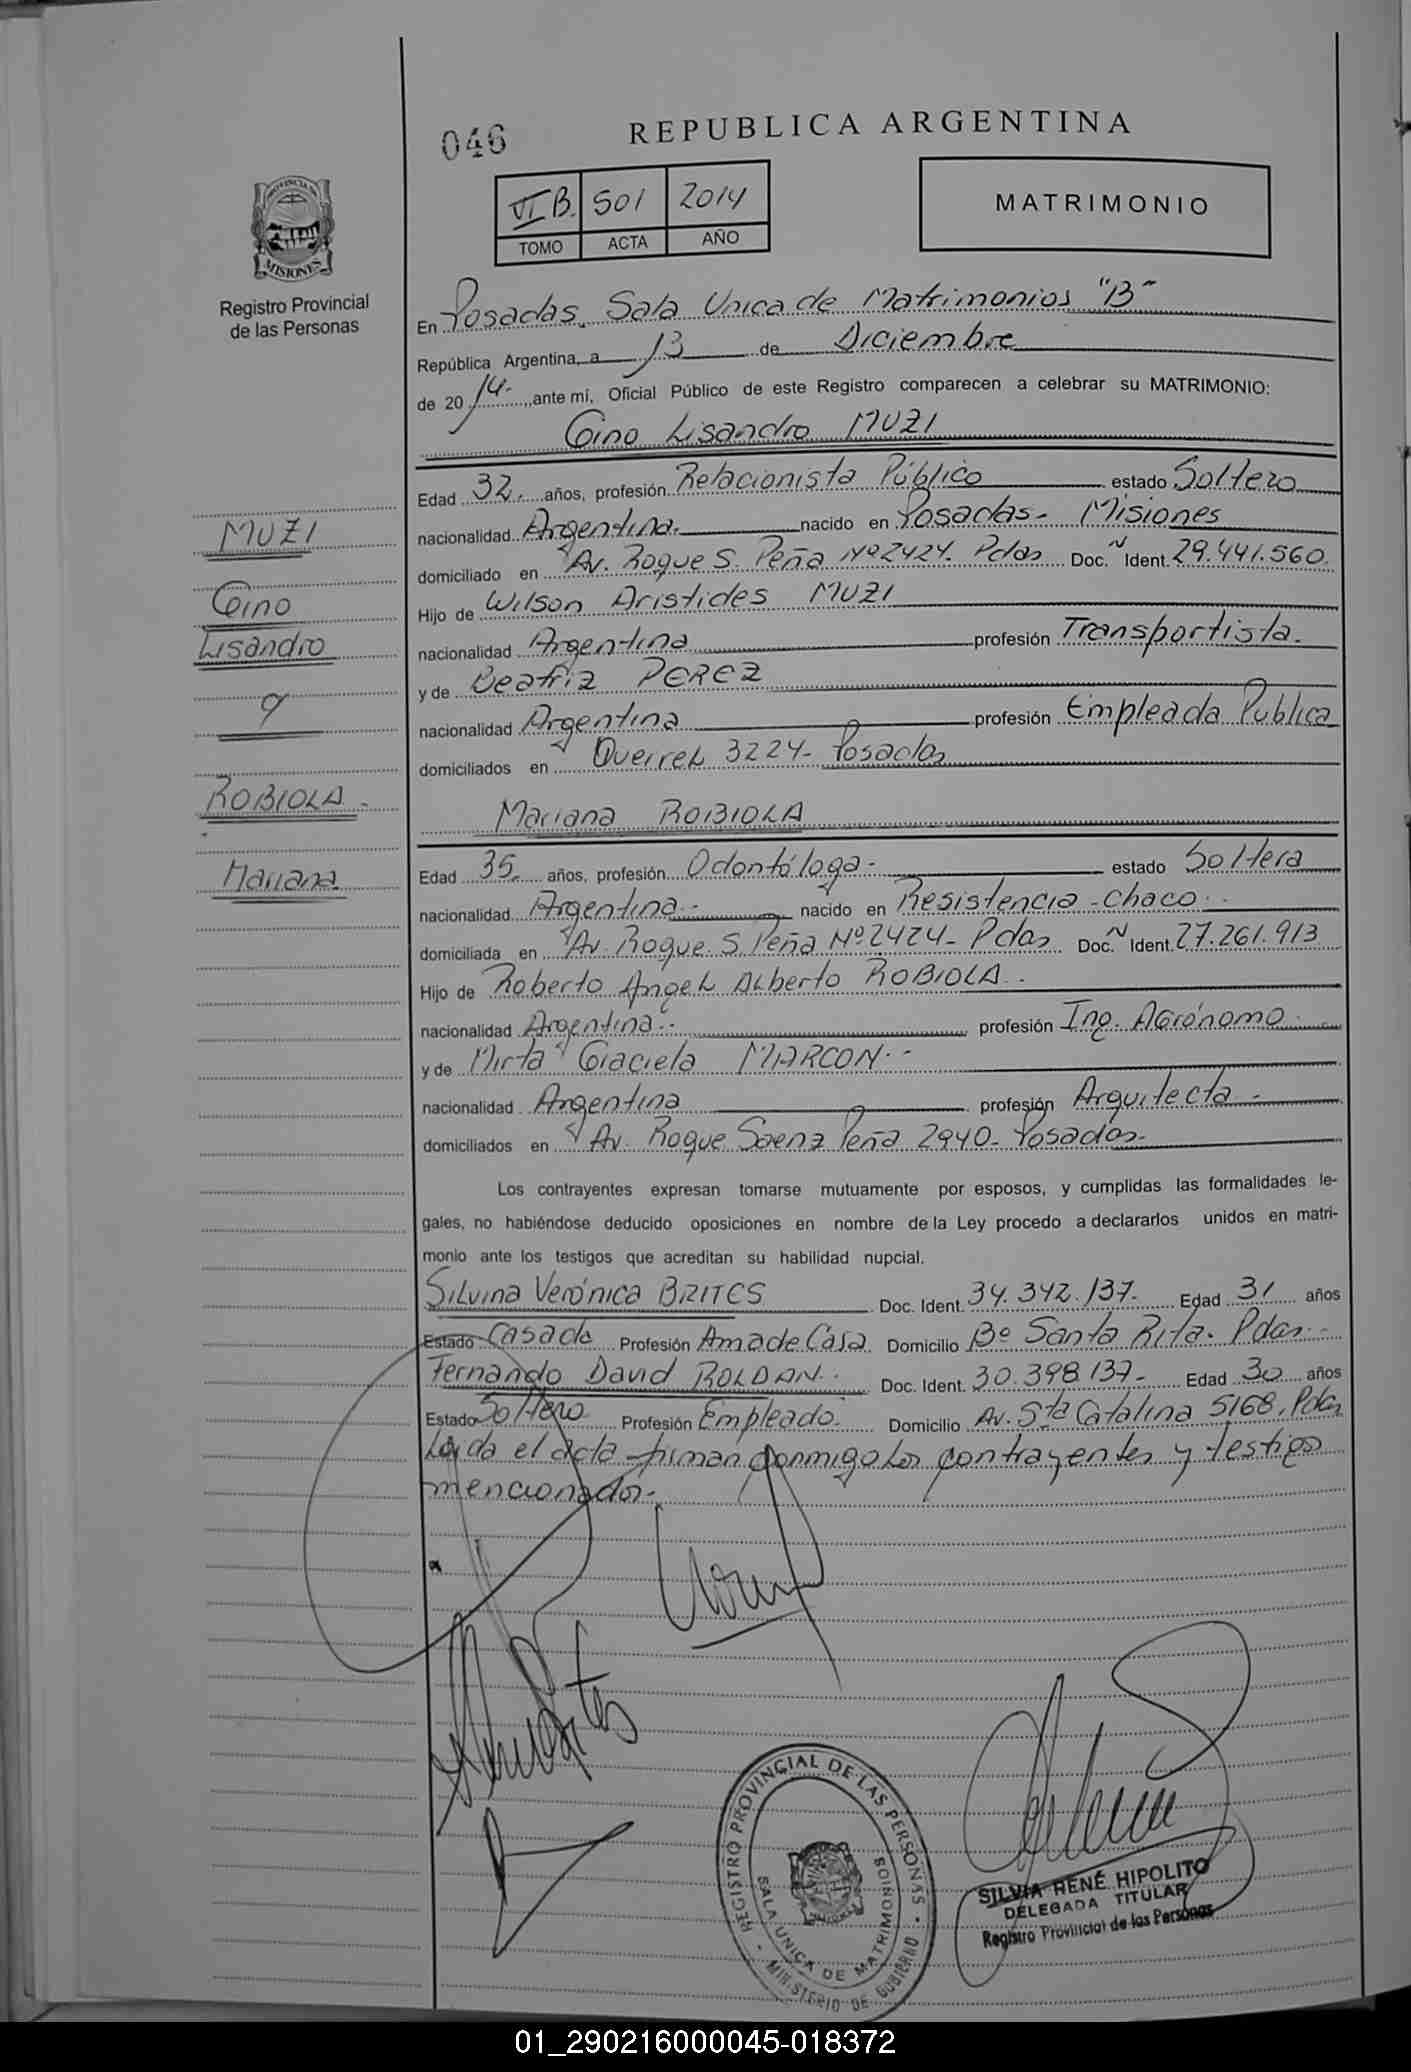 046
REPUBLICA ARGENTINA
VI B. 501 2014
TOMO ACTA AÑO
MATRIMONIO
PROVINCIA DE
MISIONES
Registro Provincial
de las Personas
En Posadas. Sala Unica de Matrimonios "B"
República Argentina, a 13 de Diciembre
de 2014.- ante mí, Oficial Público de este Registro comparecen a celebrar su MATRIMONIO:
Gino Lisandro MUZI
Edad 32. años, profesión Relacionista Público estado Soltero
nacionalidad Argentina. nacido en Posadas - Misiones
domiciliado en Av. Roque S. Peña Nº 2424. Pdas Doc. N Ident. 29.441.560.
Hijo de Wilson Aristides MUZI
nacionalidad Argentina profesión Transportista.
y de Beatriz PEREZ
nacionalidad Argentina profesión Empleada Publica
domiciliados en Querrel 3224 - Posadas
Mariana ROBIOLA
Edad 35. años, profesión Odontóloga - estado Soltera
nacionalidad Argentina - nacido en Resistencia - Chaco -
domiciliada en Av. Roque S. Peña Nº 2424 - Pdas Doc. N Ident. 27.261.913
Hijo de Roberto Angel Alberto ROBIOLA -
nacionalidad Argentina - profesión Ing. Agrónomo
y de Mirta Graciela MARCON -
nacionalidad Argentina profesión Arquitecta -
domiciliados en Av. Roque Saenz Peña 2940 - Posadas -
Los contrayentes expresan tomarse mutuamente por esposos, y cumplidas las formalidades le-
gales, no habiéndose deducido oposiciones en nombre de la Ley procedo a declararlos unidos en matri-
monio ante los testigos que acreditan su habilidad nupcial.
Silvina Verónica BRITES Doc. Ident. 34.342.137.- Edad 31 años
Estado Casada Profesión Ama de Casa Domicilio Bº Santa Rita. Pdas -
Fernando David ROLDAN. Doc. Ident. 30.398.137 - Edad 30 años
Estado Soltero Profesión Empleado. Domicilio Av. Sta Catalina 5168, Pdas
Leida el acta firman conmigo los contrayentes y testigos
mencionados -
MUZI
Gino
Lisandro
y
ROBIOLA -
Mariana
REGISTRO PROVINCIAL DE LAS PERSONAS
SALA UNICA DE MATRIMONIOS
MINISTERIO DE GOBIERNO
SILVIA RENÉ HIPOLITO
DELEGADA TITULAR
Registro Provincial de las Personas
01_290216000045-018372